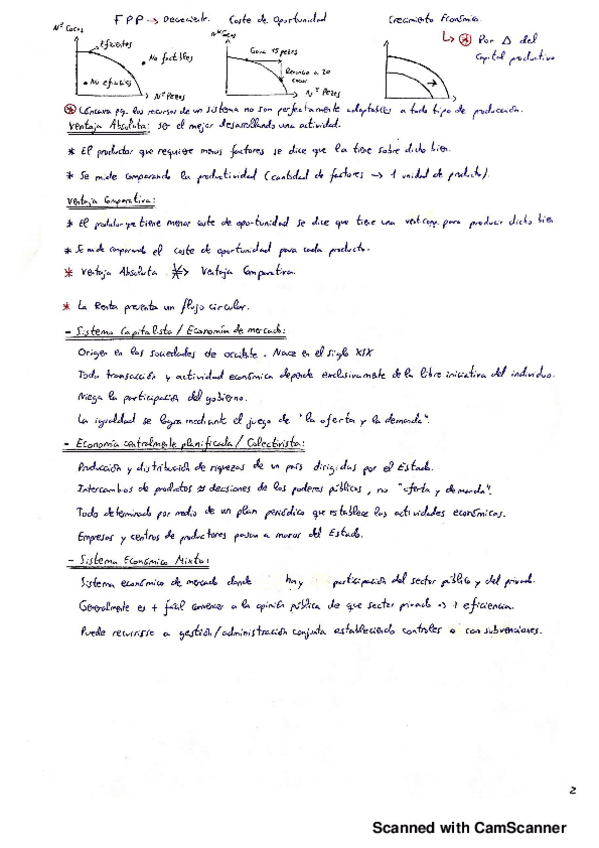 FPP → Decreciente. Coste de Oportunidad Crecimiento Económico
Nº Cocos
Eficientes
No factibles
No eficientes
Nº Peces
Nº Cocos
Gana 15 peces
Renuncia a 20 cocos
Nº Peces
↳ * Por Δ del
capital productivo
* Cóncava pq. los recursos de un sistema no son perfectamente adaptables a todo tipo de producción.
Ventaja Absoluta: ser el mejor desarrollando una actividad.
* El productor que requiere menos factores se dice que la tiene sobre dicho bien.
* Se mide comparando la productividad (cantidad de factores → 1 unidad de producto).
Ventaja Comparativa:
* El productor que tiene menor coste de oportunidad se dice que tiene una vent. comp. para producir dicho bien.
* Se mide comparando el coste de oportunidad para cada producto.
* Ventaja Absoluta ⇏ Ventaja Comparativa.
* La Renta presenta un flujo circular.
- Sistema Capitalista / Economía de mercado:
Origen en las sociedades de occidente. Nace en el siglo XIX
Toda transacción y actividad económica depende exclusivamente de la libre iniciativa del individuo.
Niega la participación del gobierno.
La igualdad se logra mediante el juego de "la oferta y la demanda".
- Economía centralmente planificada / Colectivista:
Producción y distribución de riquezas de un país dirigidas por el Estado.
Intercambios de productos decisiones de los poderes públicos, no "oferta y demanda".
Todo determinado por medio de un plan periódico que establece las actividades económicas.
Empresas y centros de productores pasan a manos del Estado.
- Sistema Económico Mixto:
Sistema económico de mercado donde hay participación del sector público y del privado.
Generalmente es + fácil convencer a la opinión pública de que sector privado => ↑ eficiencia.
Puede recurrirse a gestión/administración conjunta estableciendo controles o con subvenciones.
2
Scanned with CamScanner